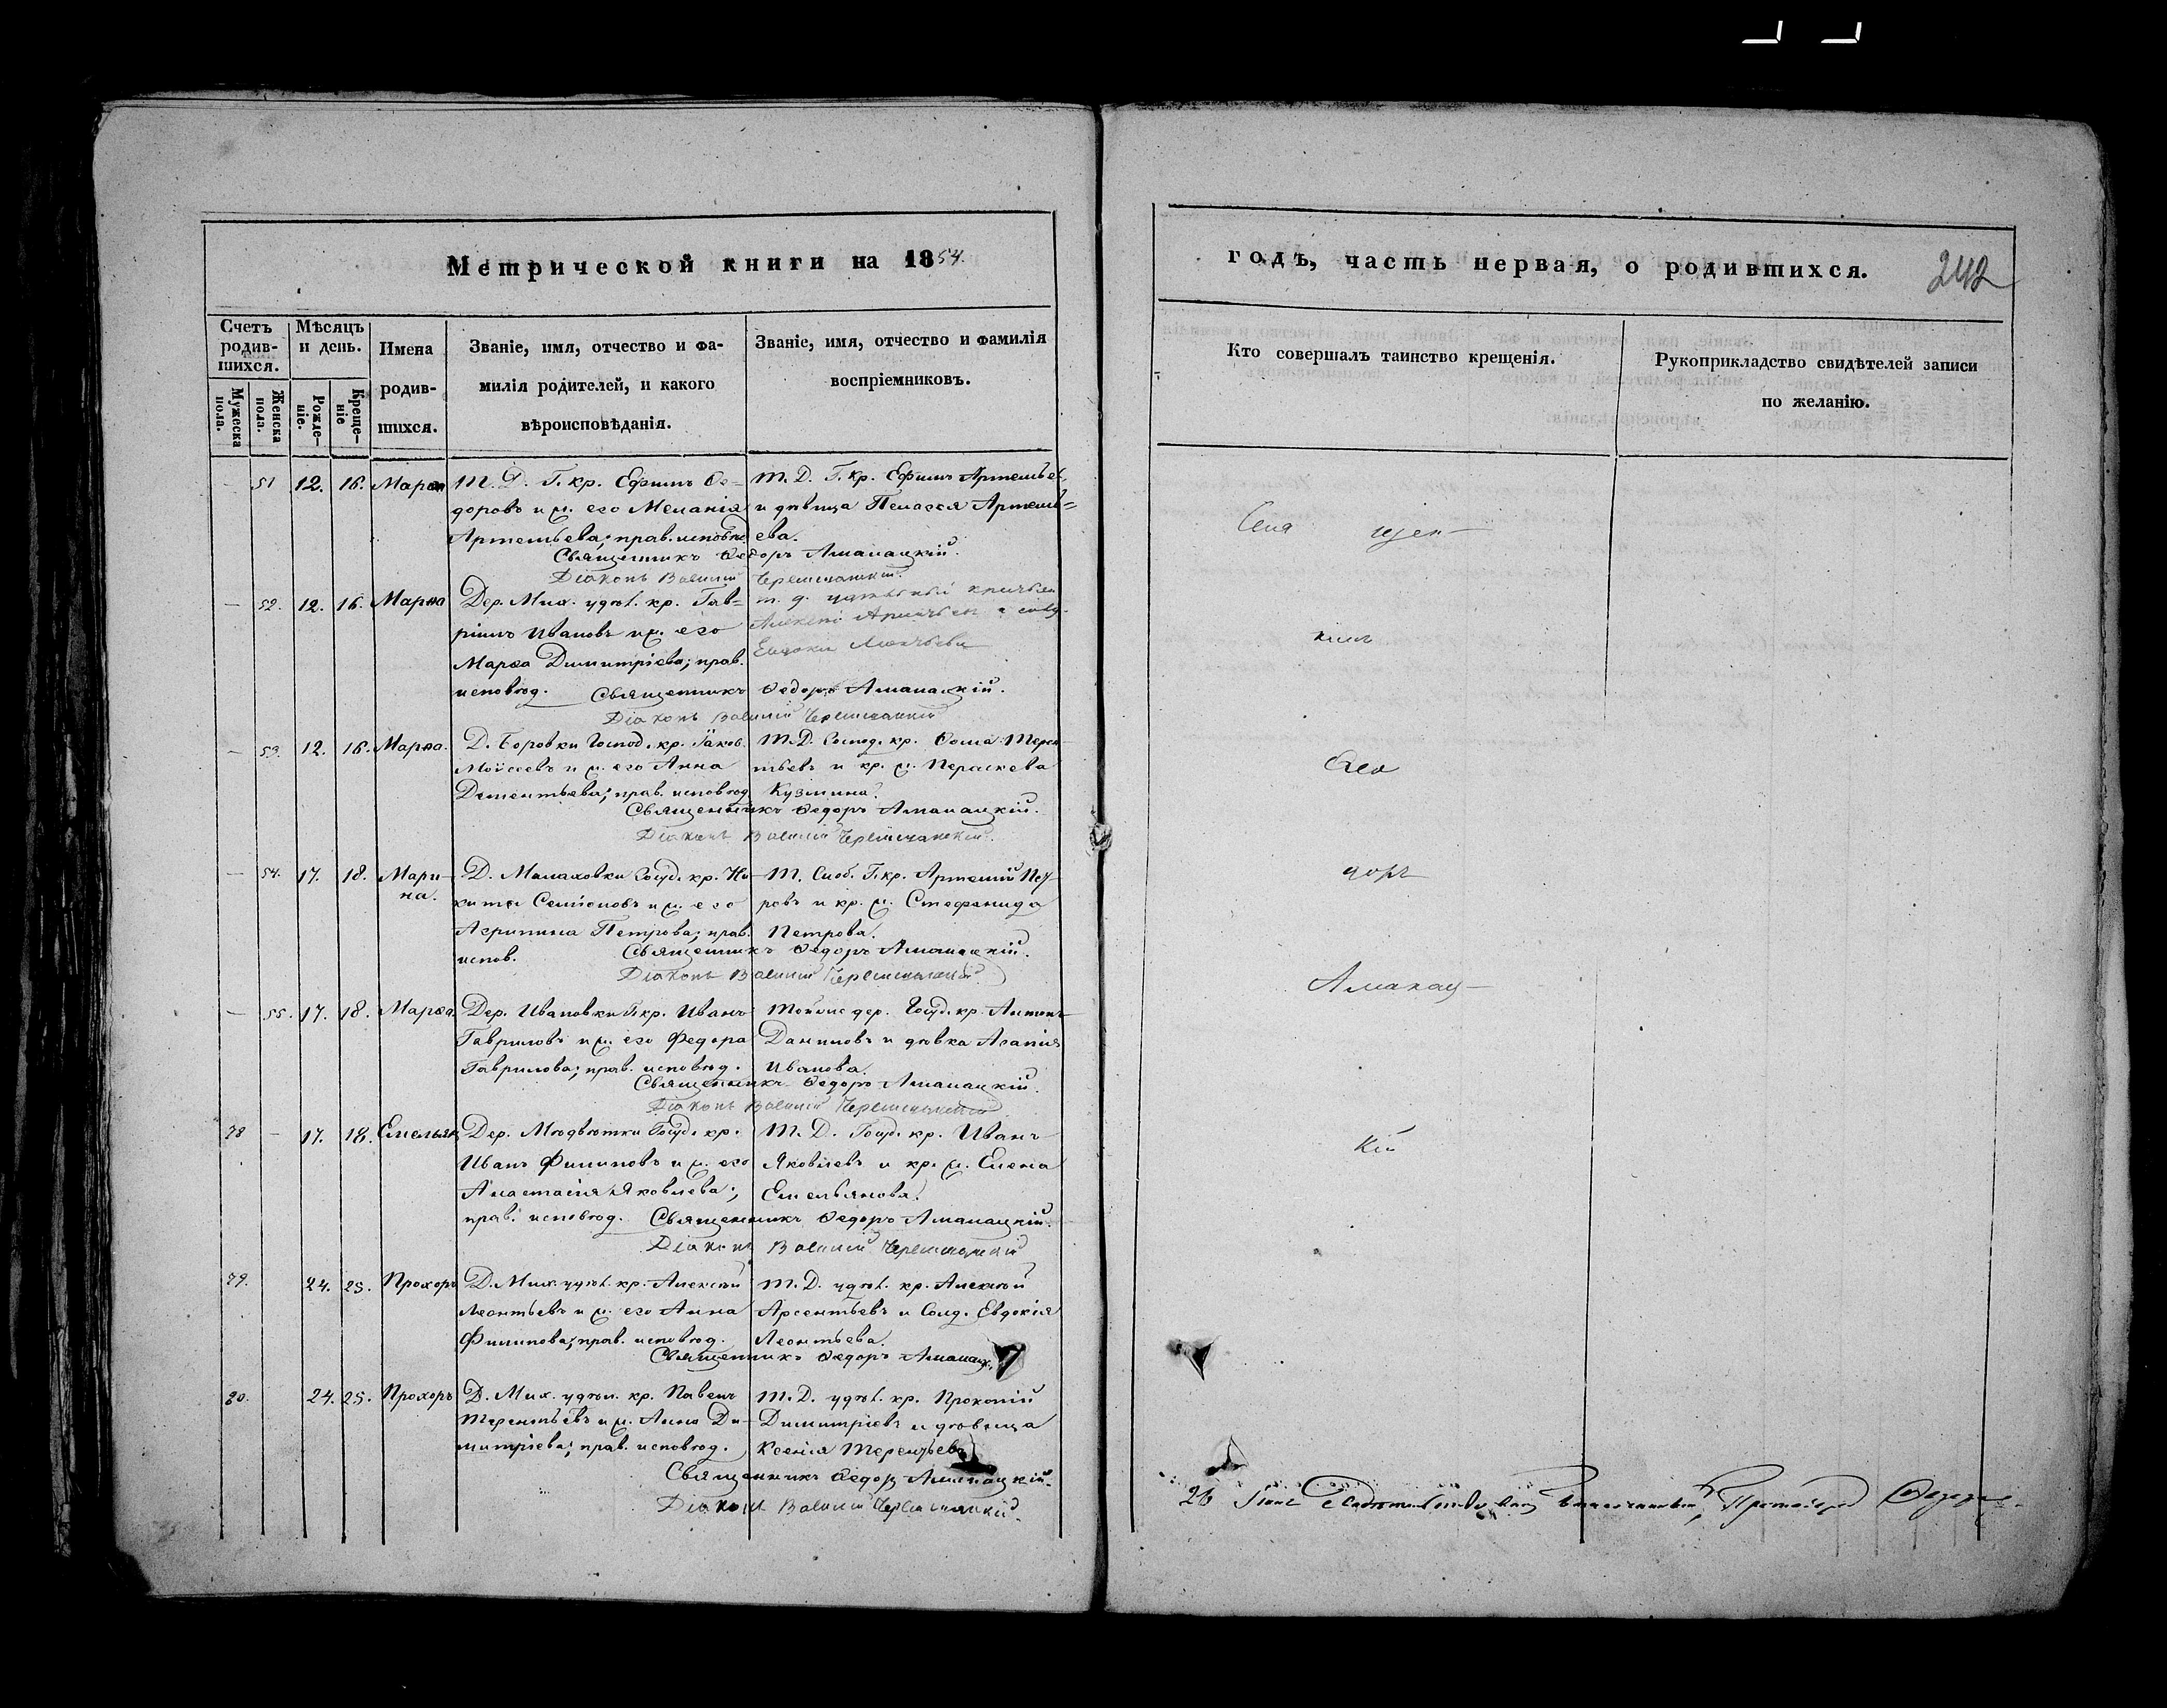 Метрической книги на 1854.
Счетъ родив-шихся.
Мужеска пола.
Женска пола.
Мѣсяцъ и день.
Рожде-ніе.
Креще-ніе
Имена родив-шихся.
Званіе, имя, отчество и фа-
милія родителей, и какого
вѣроисповѣданія.
Званіе, имя, отчество и фамилія
воспріемниковъ.
— 51 12. 16. Марѳа
Т. Д. Г. кр. Ефимъ Ѳе-
доровъ и ж. его Меланія
Артемьева; прав. исповѣд.
Т. Д. Г. кр. Ефимъ Артемьев
и дѣвица Пелагея Артемь=
ева.
Священникъ Ѳедоръ Аманацкій.
Діаконъ Василій Черемшанскій.
— 52. 12. 16. Марѳа
Дер. Мих. удѣл. кр. Гав=
ріилъ Ивановъ и ж. его
Марѳа Димитріева; прав.
исповѣд.
т. д.
Священникъ Ѳедоръ Аманацкій.
Діаконъ Василій Черемшанскій
— 53. 12. 16. Марѳа.
Д. Боровки Госуд. кр. Іаков.
Моисеевъ и ж. его Анна
Дементьева; прав. исповѣд.
Т. Д. Госуд. кр. Ѳома Терен-
тьевъ и кр. ж. Параскева
Кузмина.
Священникъ Ѳедоръ Аманацкій.
Діаконъ Василій Черемшанскій.
— 54. 17. 18. Мари-
на.
Д. Малаховки Госуд. кр. Ни-
кита Семіоновъ и ж. его
Агрипина Петрова; прав.
испов.
Т. Слоб. Г. кр. Артемій Пет-
ровъ и кр. ж. Стефанида
Петрова.
Священникъ Ѳедоръ Аманацкій.
Діаконъ Василій Черемшанскій
— 55. 17. 18. Марѳа.
Дер. Ивановки Г. кр. Иванъ
Гавриловъ и ж. его Федора
Гаврилова; прав. исповѣд.
Тойже дер. Госуд. кр. Антонъ
Даниловъ и дѣвка Агапія
Иванова.
Священникъ Ѳедоръ Аманацкій.
Діаконъ Василій Черемшанскій
78 — 17. 18. Емельян
Дер. Медвѣтки Госуд. кр.
Иванъ Филиповъ и ж. его
Анастасія Яковлева;
прав. исповѣд.
Т. Д. Госуд. кр. Иванъ
Яковлевъ и кр. ж. Елена
Емельянова.
Священникъ Ѳедоръ Аманацкій.
Діаконъ Василій Черемшанскій
79. 24. 25. Прохоръ
Д. Мих. удѣл. кр. Алексѣй
Леонтьевъ и ж. его Анна
Филипова; прав. исповѣд.
Т. Д. удѣл. кр. Алексѣй
Арсентьевъ и Солд. Евдокія
Леонтьева.
Священникъ Ѳедоръ Аманацк.
80. 24. 25. Прохоръ
Д. Мих. удѣл. кр. Павелъ
Терентьевъ и ж. Анна Ди-
митріева; прав. исповѣд.
Т. Д. удѣл. кр. Прокопій
Димитріевъ и дѣвица
Ксенія Терентьева
Священникъ Ѳедоръ Аманацкій.
Діаконъ Василій Черемшанскій.
годъ, часть первая, о родившихся.
242
Кто совершалъ таинство крещенія.
Рукоприкладство свидѣтелей записи
по желанію.
Свя щен-
никъ
Ѳео
доръ
Аманац-
кій